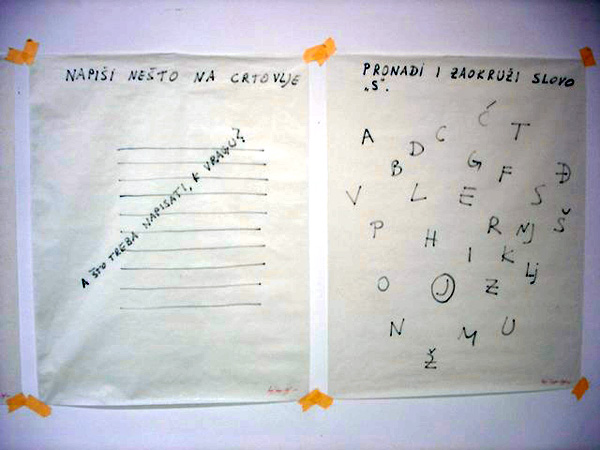 NAPIŠI NEŠTO NA CRTOVLJE
A ŠTO TREBA NAPISATI, K VRAGU?
PRONAĐI I ZAOKRUŽI SLOVO
„S”.
Ć
A D C T
B G F Đ
V L E S
P H R NJ Š
I K LJ
O J Z
N M U
Ž